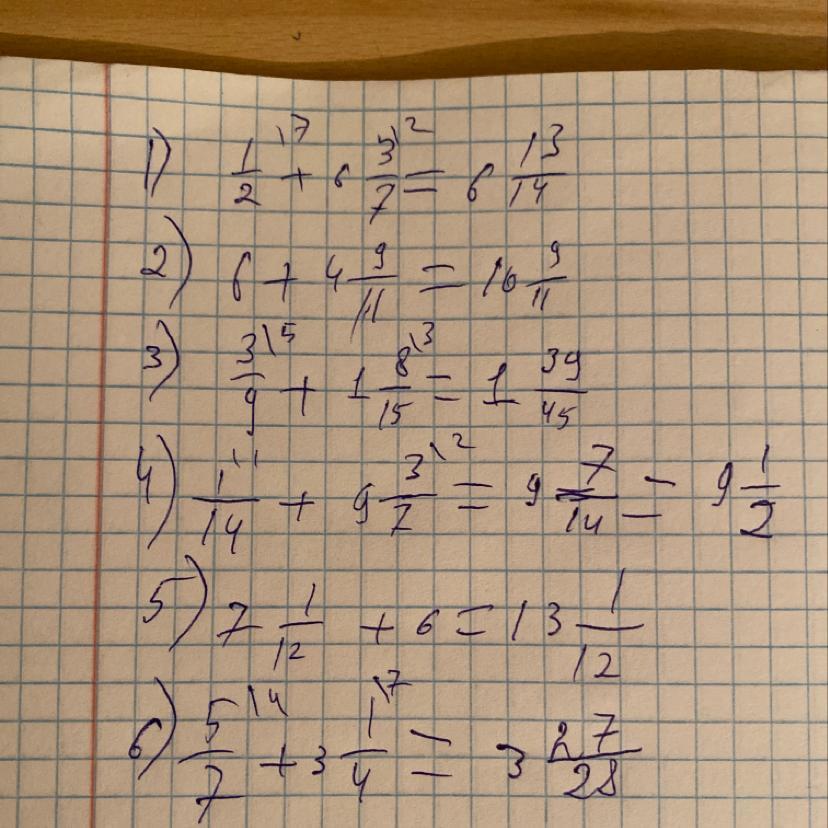 1) 1/2 \7 + 6 3/7 \2 = 6 13/14
2) 6 + 4 9/11 = 10 9/11
3) 3/9 \5 + 1 8/15 \3 = 1 39/45
4) 1/14 \1 + 9 3/7 \2 = 9 7/14 = 9 1/2
5) 7 1/12 + 6 = 13 1/12
6) 5/7 \4 + 3 1/4 \7 = 3 27/28